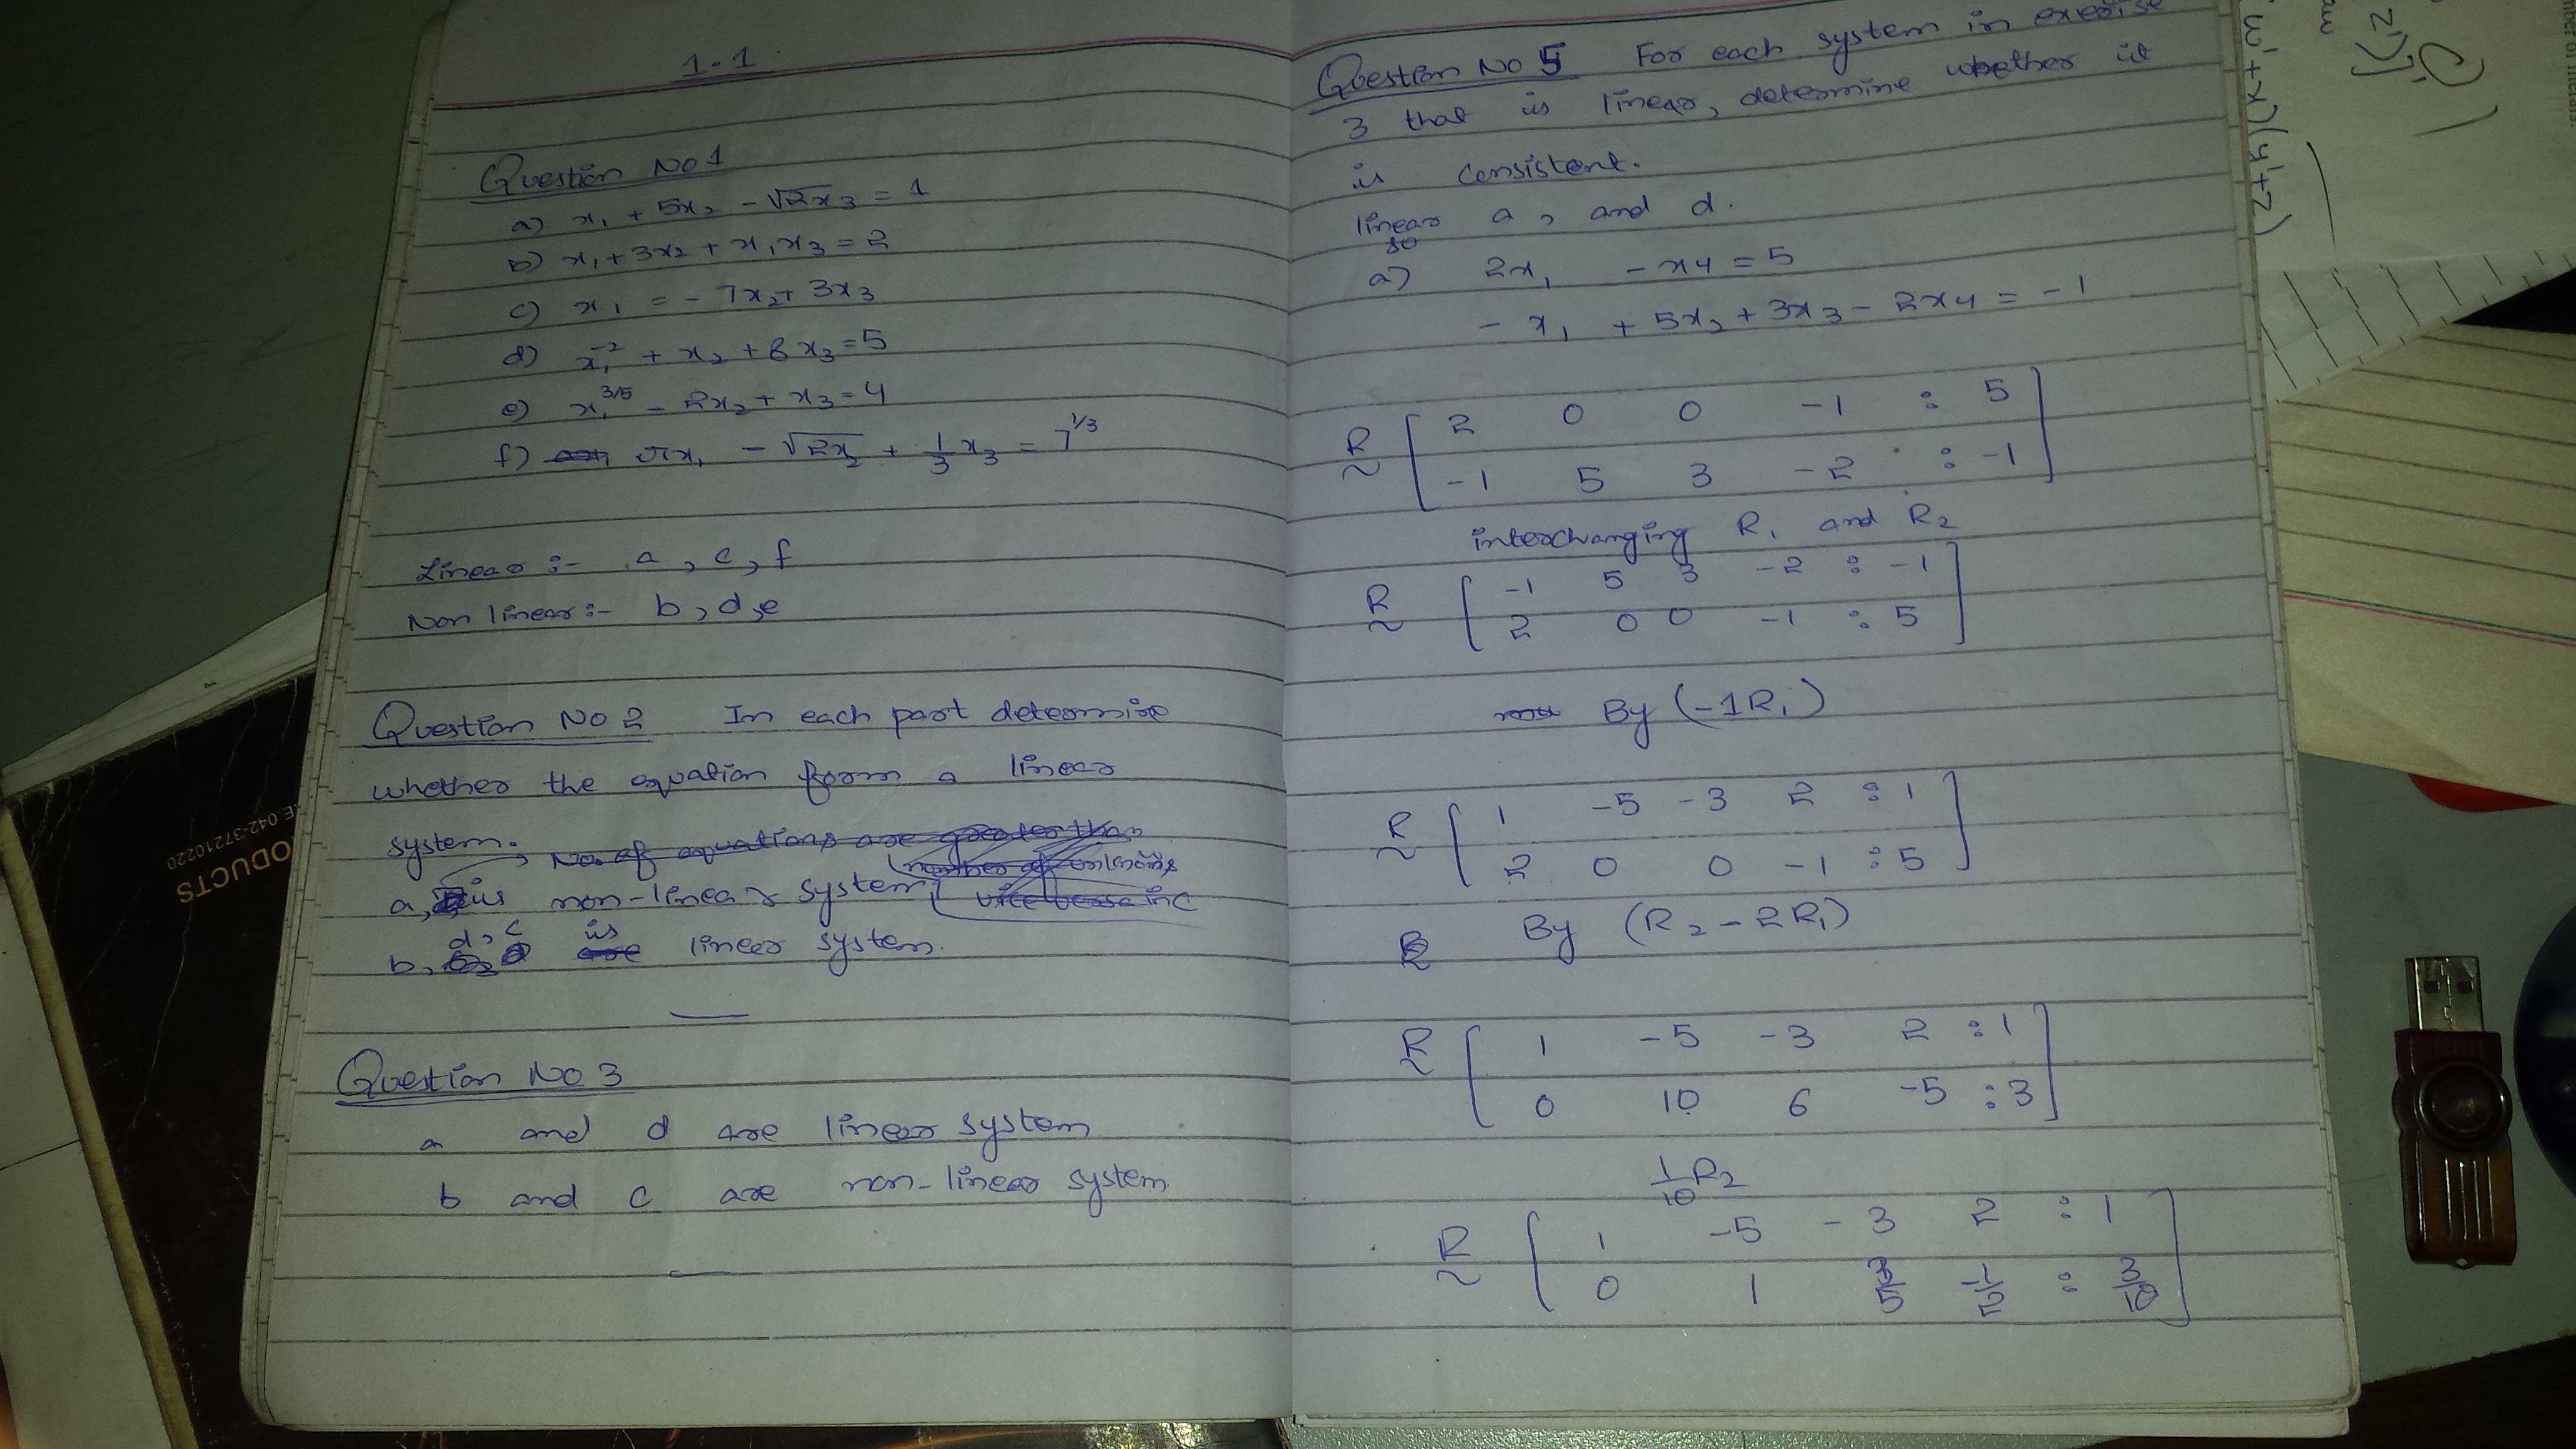 1.1
Question No 1
a) x₁ + 5x₂ - √2x₃ = 1
b) x₁ + 3x₂ + x₁x₃ = 2
c) x₁ = - 7x₂ + 3x₃
d) x₁⁻² + x₂ + 8x₃ = 5
e) x₁^3/5 - 2x₂ + x₃ = 4
f) πx₁ - √2x₂ + 1/3 x₃ = 7^1/3
Linear :- a, c, f
Non linear :- b, d, e
Question No 2 In each part determine
whether the equation form a linear
system.
a, is non-linear system
b, d, c is linear system.
Question No 3
a and d are linear system
b and c are non-linear system.
Question No 5 For each system in exerise
3 that is linear, determine whether it
is consistent.
linear a, and d.
so
a) 2x₁ - x₄ = 5
- x₁ + 5x₂ + 3x₃ - 2x₄ = -1
R ~ [ 2 0 0 -1 : 5
-1 5 3 -2 : -1 ]
interchanging R₁ and R₂
R ~ [ -1 5 3 -2 : -1
2 0 0 -1 : 5 ]
By (-1R₁)
R ~ [ 1 -5 -3 2 : 1
2 0 0 -1 : 5 ]
By (R₂ - 2R₁)
R ~ [ 1 -5 -3 2 : 1
0 10 6 -5 : 3 ]
1/10 R₂
R ~ [ 1 -5 -3 2 : 1
0 1 3/5 -1/2 : 3/10 ]
ODUCTS
E.042-37210220